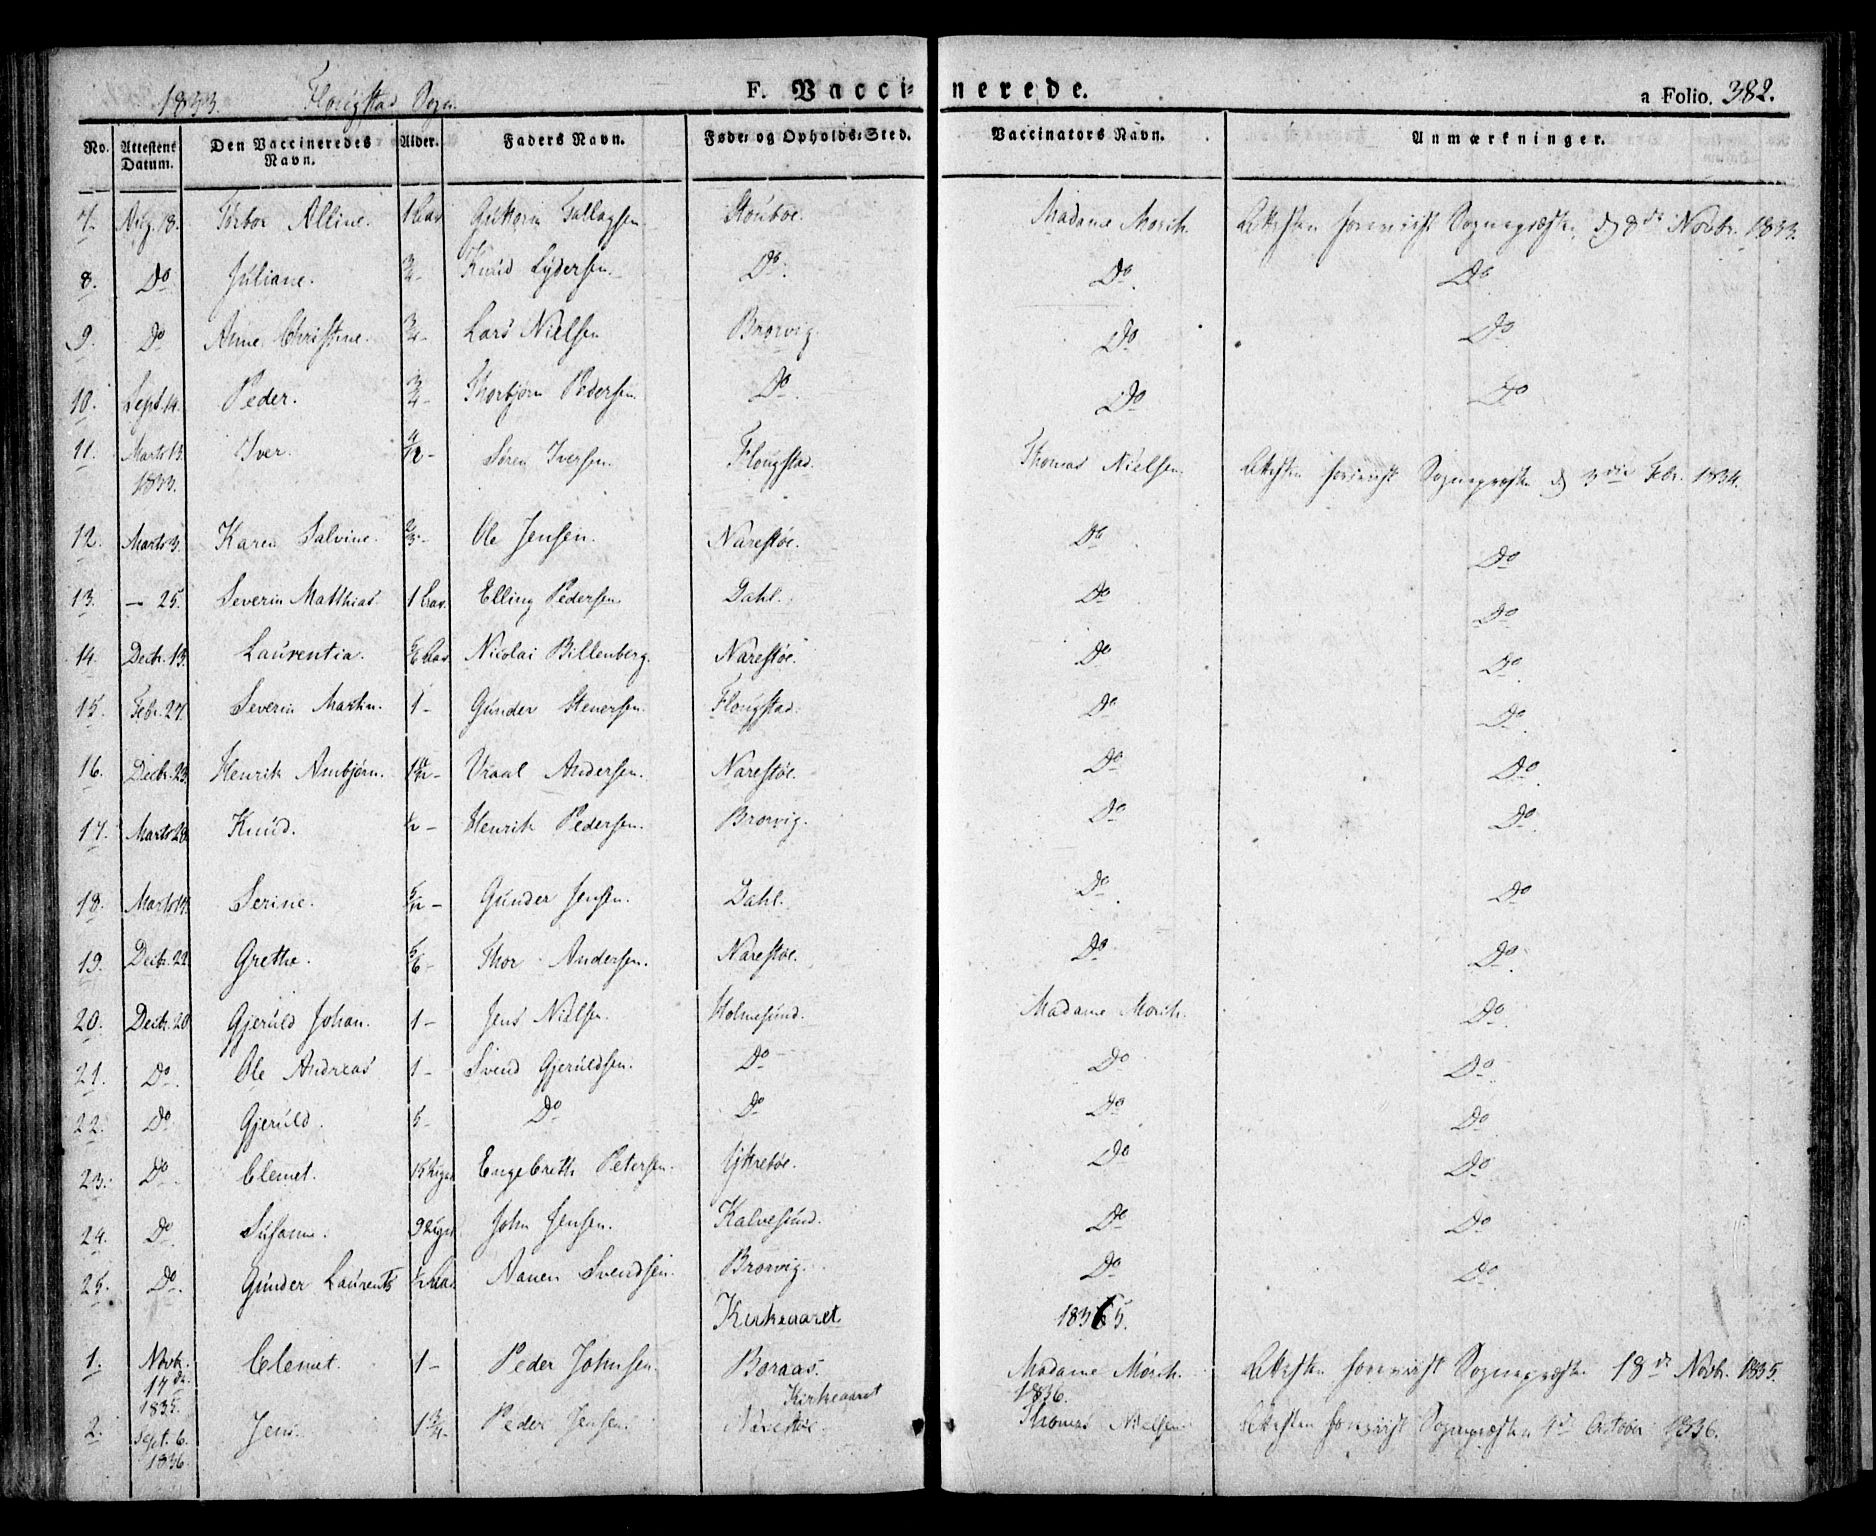 1833. Flougstad Sogn. F. Vaccinerede. a Folio. 382.
No. Attestens Datum. Den Vaccineredes Navn. Alder. Faders Navn. Føde- og Opholds-Sted. Vaccinators Navn. Anmærkninger.
7. Aug. 18. Torbor Alline. 1 Guttorm Tallagsen. Stoubøe. Madame Morch. Attesten foreviist Sognepræsten d. 8de Novbr. 1833.
8. Do Juliane. 3/4 - Knud Lydersen. Do. Do. Do
9. Do Anne Christine. 3/4 - Lars Nielsen Brorvig. Do Do
10. Sept. 14. Peder. 3/4 - Thorbjørn Pedersen. Do. Do Do
11. Marts 13. 1833. Iver. Søren Iversen. Flougstad. Thomas Nielsen. Attesten foreviist Sognepræsten d. 3die Febr. 1834.
12. Marts 3. Karen Salvine. 2/3 - Ole Jensen. Narestøe. Do Do
13. - 25. Severin Matthias. 1 Elling Pedersen Dahl. Do Do
14. Decbr. 13. Laurentia. Nicolai Billenberg. Narestøe. Do Do
15. Febr. 27. Severin Martin. 1 - Gunder Stenersen. Flougstad. Do Do
16. Decbr. 23. Henrik Anbjørn. Vraal Andersen. Narestøe. Do Do.
17. Marts 28. Knud. 1/2 - Henrik Pedersen. Brorvig. Do Do.
18. Marts 14. Serine. 5/12 - Gunder Jensen. Dahl. Do. Do
19. Decbr. 22. Grethe. 5/6 - Thor Andersen. Narestøe. Do Do.
20. Decbr. 20. Gjeruld Johan. 1 - Jens Nielsen. Holmesund. Madame Morch. Do
21. Do. Ole Andreas 1 - Svend Gjeruldsen. Do Do Do
22. Do. Gjeruld. 5 - Do Do Do Do
23. Do. Clemet. Engebreth Petersen. Do Do
24. Do. Susanne. John Jensen. Kalvesund. Do Do
25. Do. Gunder Laurents Nanen Svendsen. Brorvig. Do Do
Kirkeaaret 1835.
1. Novbr. 17de 1835. Clemet. 1 - Peder Johnsen. Boraas. Madame Morch. Attesten foreviist Sognepræsten 18de Novbr. 1835.
Kirkeaaret 1836.
2. Sept. 6. 1836 Jens. 1 3/4 - Peder Jensen. Narestøe. Thomas Nielsen Attesten foreviist Sognepræsten 4de October 1836.